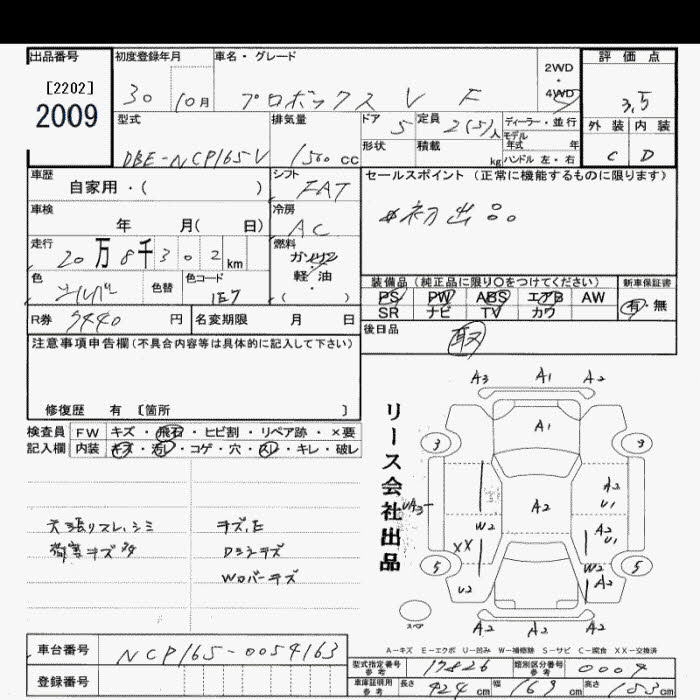 出品番号 初度登録年月 車名・グレード 2WD・4WD 評価点
[2202]
2009
30 10月 プロボックス V F 3.5
型式 排気量 ドア 5 定員 2(5)人 ディーラー・並行 外装 内装
DBE-NCP165V 1500cc 形状 積載 kg モデル年式 年 C D
ハンドル 左・右
車歴 シフト セールスポイント(正常に機能するものに限ります)
自家用・( ) FAT
車検 冷房 *初出品。
年 月( 日) AC
走行 燃料
20万8千302km ガソリン・軽・油 ( )
色 色替 色コード 装備品(純正品に限り○をつけてください) 新車保証書
シルバー 1E7 PS PW ABS エアB AW 有・無
SR ナビ TV カワ
R券 9440円 名変期限 月 日 後日品
取
注意事項申告欄(不具合内容等は具体的に記入して下さい)
修復歴 有 [箇所 ]
検査員記入欄 FW キズ・飛石・ヒビ割・リペア跡・×要
内装 キズ・汚レ・コゲ・穴・スレ・キレ・破レ
天張りスレ,シミ キズ,E
荷室キズ
Wカバーキズ
リース会社出品
A3 A1 A2
A1
3 3
A2 A2
U1
UA3
W2 A2
U1
XX
5 5
W2
U2 A2
A2 A2 A2
スペア
A-キズ E-エクボ U-凹み W-補修跡 S-サビ C-腐食 XX-交換済
車台番号 NCP165-0054163
登録番号
型式指定番号参考 17826 類別区分番号参考 0004
車庫証明用参考 長さ 424cm 幅 169cm 高さ 153cm